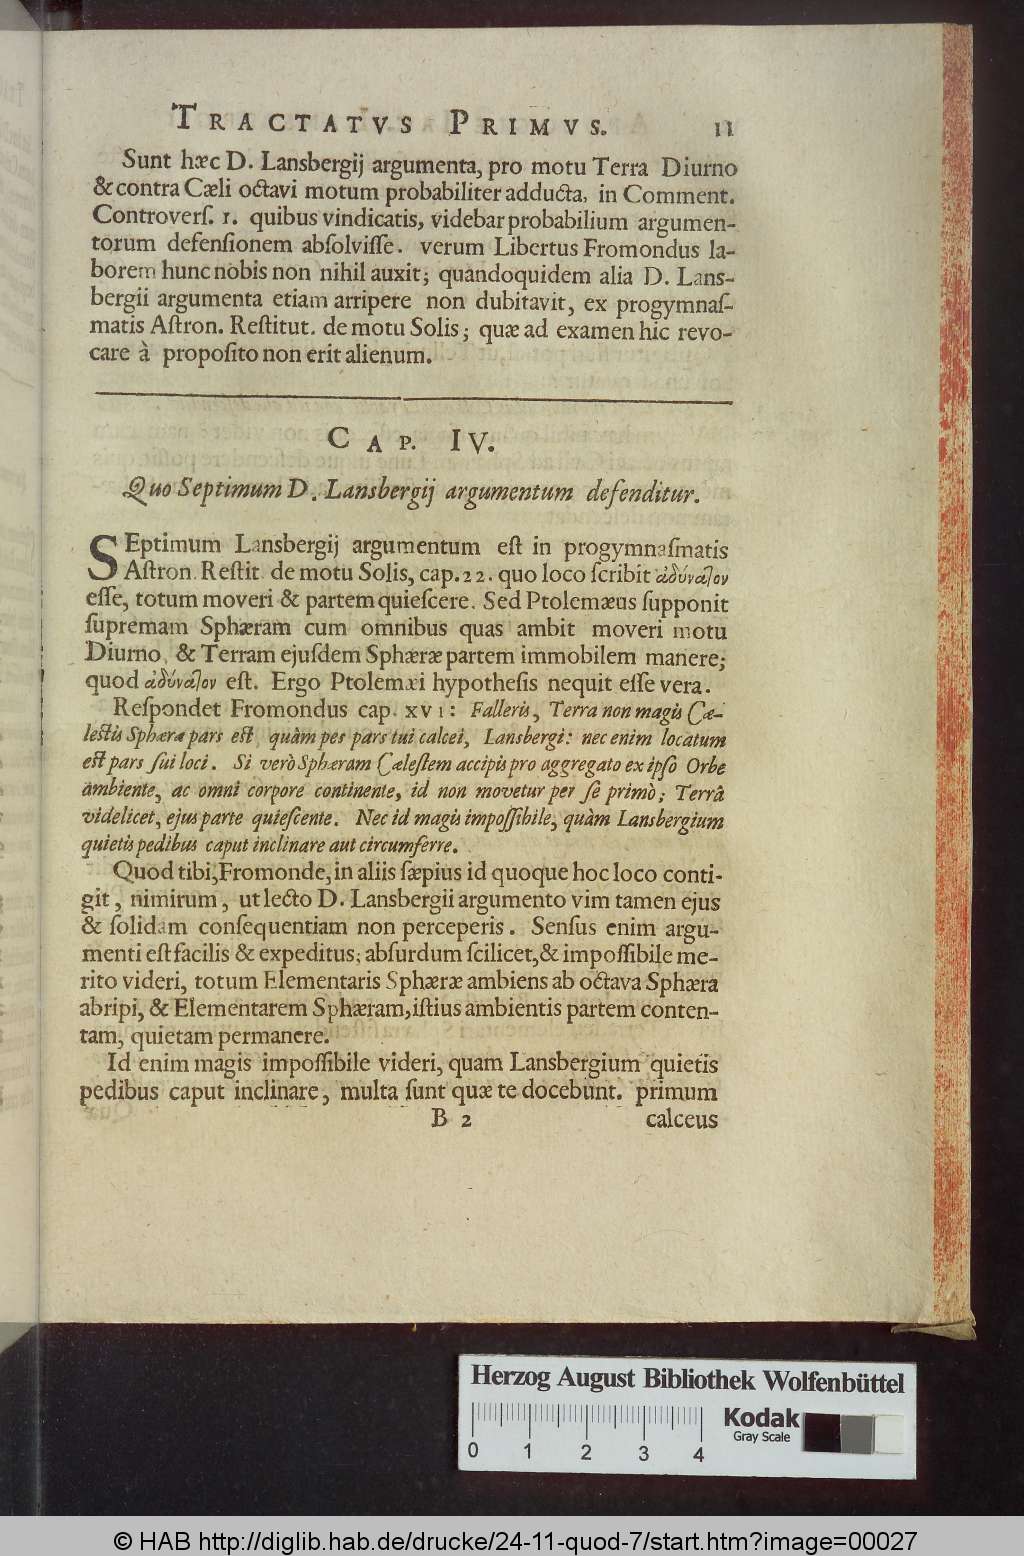 TRACTATVS PRIMVS. 11
Sunt hæc D. Lansbergij argumenta, pro motu Terra Diurno
& contra Cæli octavi motum probabiliter adducta, in Comment.
Controverſ. 1. quibus vindicatis, videbar probabilium argumen-
torum defenſionem abſolviſſe. verum Libertus Fromondus la-
borem hunc nobis non nihil auxit; quandoquidem alia D. Lans-
bergii argumenta etiam arripere non dubitavit, ex progymnaſ-
matis Aſtron. Reſtitut. de motu Solis; quæ ad examen hic revo-
care à propoſito non erit alienum.
CAP. IV.
Quo Septimum D. Lansbergij argumentum defenditur.
SEptimum Lansbergij argumentum eſt in progymnaſmatis
Aſtron. Reſtit. de motu Solis, cap. 22. quo loco ſcribit ἀδύνατον
eſſe, totum moveri & partem quieſcere. Sed Ptolemæus ſupponit
ſupremam Sphæram cum omnibus quas ambit moveri motu
Diurno, & Terram ejuſdem Sphæræ partem immobilem manere;
quod ἀδύνατον eſt. Ergo Ptolemæi hypotheſis nequit eſſe vera.
Reſpondet Fromondus cap. XVI: Falleris, Terra non magis Cæ-
leſtis Sphæræ pars eſt, quàm pes pars tui calcei, Lansbergi: nec enim locatum
eſt pars ſui loci. Si verò Sphæram Cæleſtem accipis pro aggregato ex ipſo Orbe
ambiente, ac omni corpore continente, id non movetur per ſe primò; Terrâ
videlicet, ejus parte quieſcente. Nec id magis impoſſibile, quàm Lansbergium
quietis pedibus caput inclinare aut circumferre.
Quod tibi, Fromonde, in aliis ſæpius id quoque hoc loco conti-
git, nimirum, ut lecto D. Lansbergii argumento vim tamen ejus
& ſolidam conſequentiam non perceperis. Senſus enim argu-
menti eſt facilis & expeditus; abſurdum ſcilicet, & impoſſibile me-
rito videri, totum Elementaris Sphæræ ambiens ab octava Sphæra
abripi, & Elementarem Sphæram, iſtius ambientis partem conten-
tam, quietam permanere.
Id enim magis impoſſibile videri, quam Lansbergium quietis
pedibus caput inclinare, multa ſunt quæ te docebunt. primum
B 2 calceus
Herzog August Bibliothek Wolfenbüttel
Kodak
Gray Scale
0 1 2 3 4
© HAB http://diglib.hab.de/drucke/24-11-quod-7/start.htm?image=00027